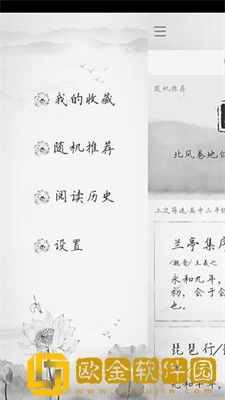 我的收藏
随机推荐
阅读历史
设置
随机推荐
北风卷地
上次筛选:高中三年级
兰亭集序
/魏晋/王羲之
永和九年，
初，会于会
琵琶行/
元和十年
欧金软件园